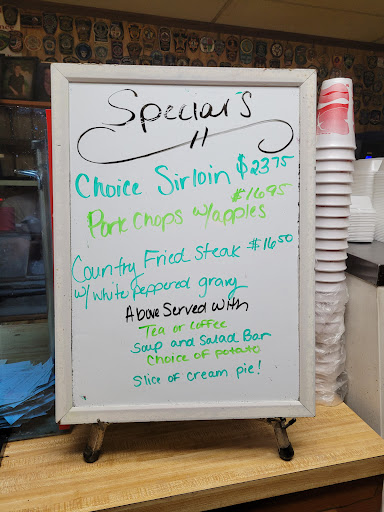 Special's
"
Choice Sirloin $23.75
$16.95
Pork Chops w/apples
Country Fried Steak $16.50
w/white peppered gravy
Above Served with
Tea or coffee
Soup and Salad Bar
Choice of potato
Slice of cream pie!